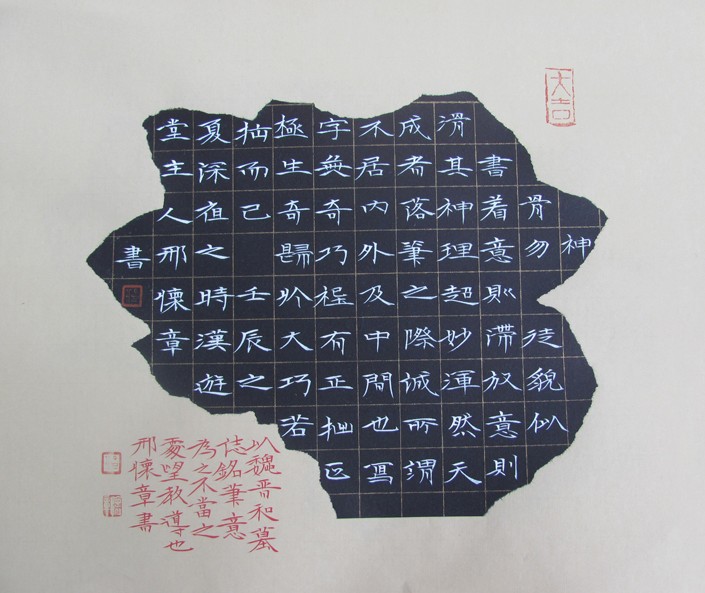 大吉
神
骨勿徒貌似
書着意則滯放意則
滑其神理超妙渾然天
成者落筆之際誠所謂
不居內外及中間也寫
字無奇巧有正拙正
極生奇歸於大巧若
拙而已壬辰之
夏深夜之時漢遊
堂主人邢懷章
書
以魏晉和墓
誌銘筆意
為之不當之
處望教導也
邢懷章書